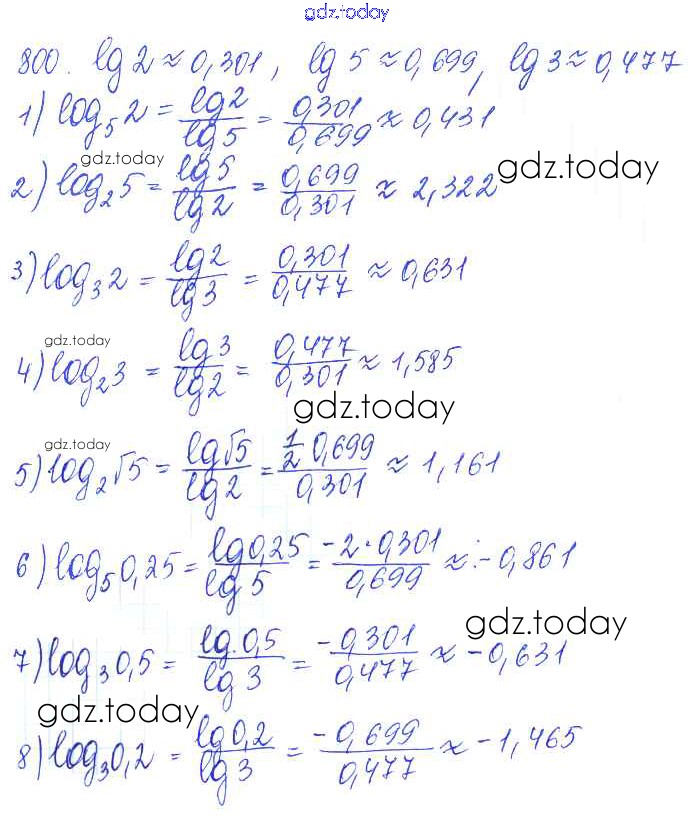 gdz.today
800. lg 2 ≈ 0,301, lg 5 ≈ 0,699, lg 3 ≈ 0,477
1) log₅2 = lg2/lg5 = 0,301/0,699 ≈ 0,431
gdz.today
gdz.today
2) log₂5 = lg5/lg2 = 0,699/0,301 ≈ 2,322
3) log₃2 = lg2/lg3 = 0,301/0,477 ≈ 0,631
gdz.today
4) log₂3 = lg3/lg2 = 0,477/0,301 ≈ 1,585
gdz.today
gdz.today
5) log₂√5 = lg√5/lg2 = ½ 0,699/0,301 ≈ 1,161
6) log₅0,25 = lg0,25/lg5 = -2·0,301/0,699 ≈ -0,861
gdz.today
7) log₃0,5 = lg0,5/lg3 = -0,301/0,477 ≈ -0,631
gdz.today
8) log₃0,2 = lg0,2/lg3 = -0,699/0,477 ≈ -1,465